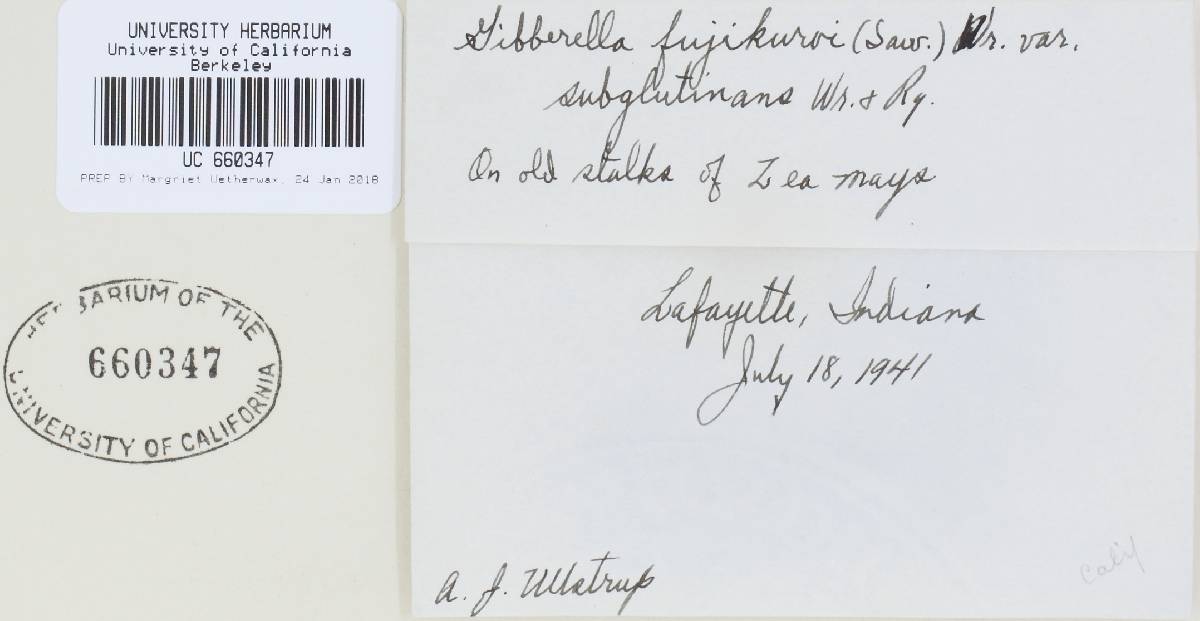 UNIVERSITY HERBARIUM
University of California
Berkeley
UC 660347
PREP BY Margriet Wetherwax, 24 Jan 2018
HERBARIUM OF THE
660347
UNIVERSITY OF CALIFORNIA
Gibberella fujikuroi (Saw.) Wr. var.
subglutinans Wr. & Rg.
On old stalks of Zea mays
Lafayette, Indiana
July 18, 1941
A. J. Ullstrup
Calif